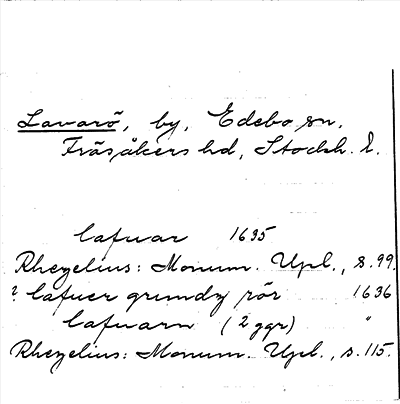 Lavarö, by, Edebo sn.
Fräsåkers hd, Stockh. l.
Lafuar 1635
Rhezelius: Monum. Upl., s. 99.
? Lafuer grundz rör 1636
Lafuarn (2 ggr) "
Rhezelius: Monum. Upl., s. 115.